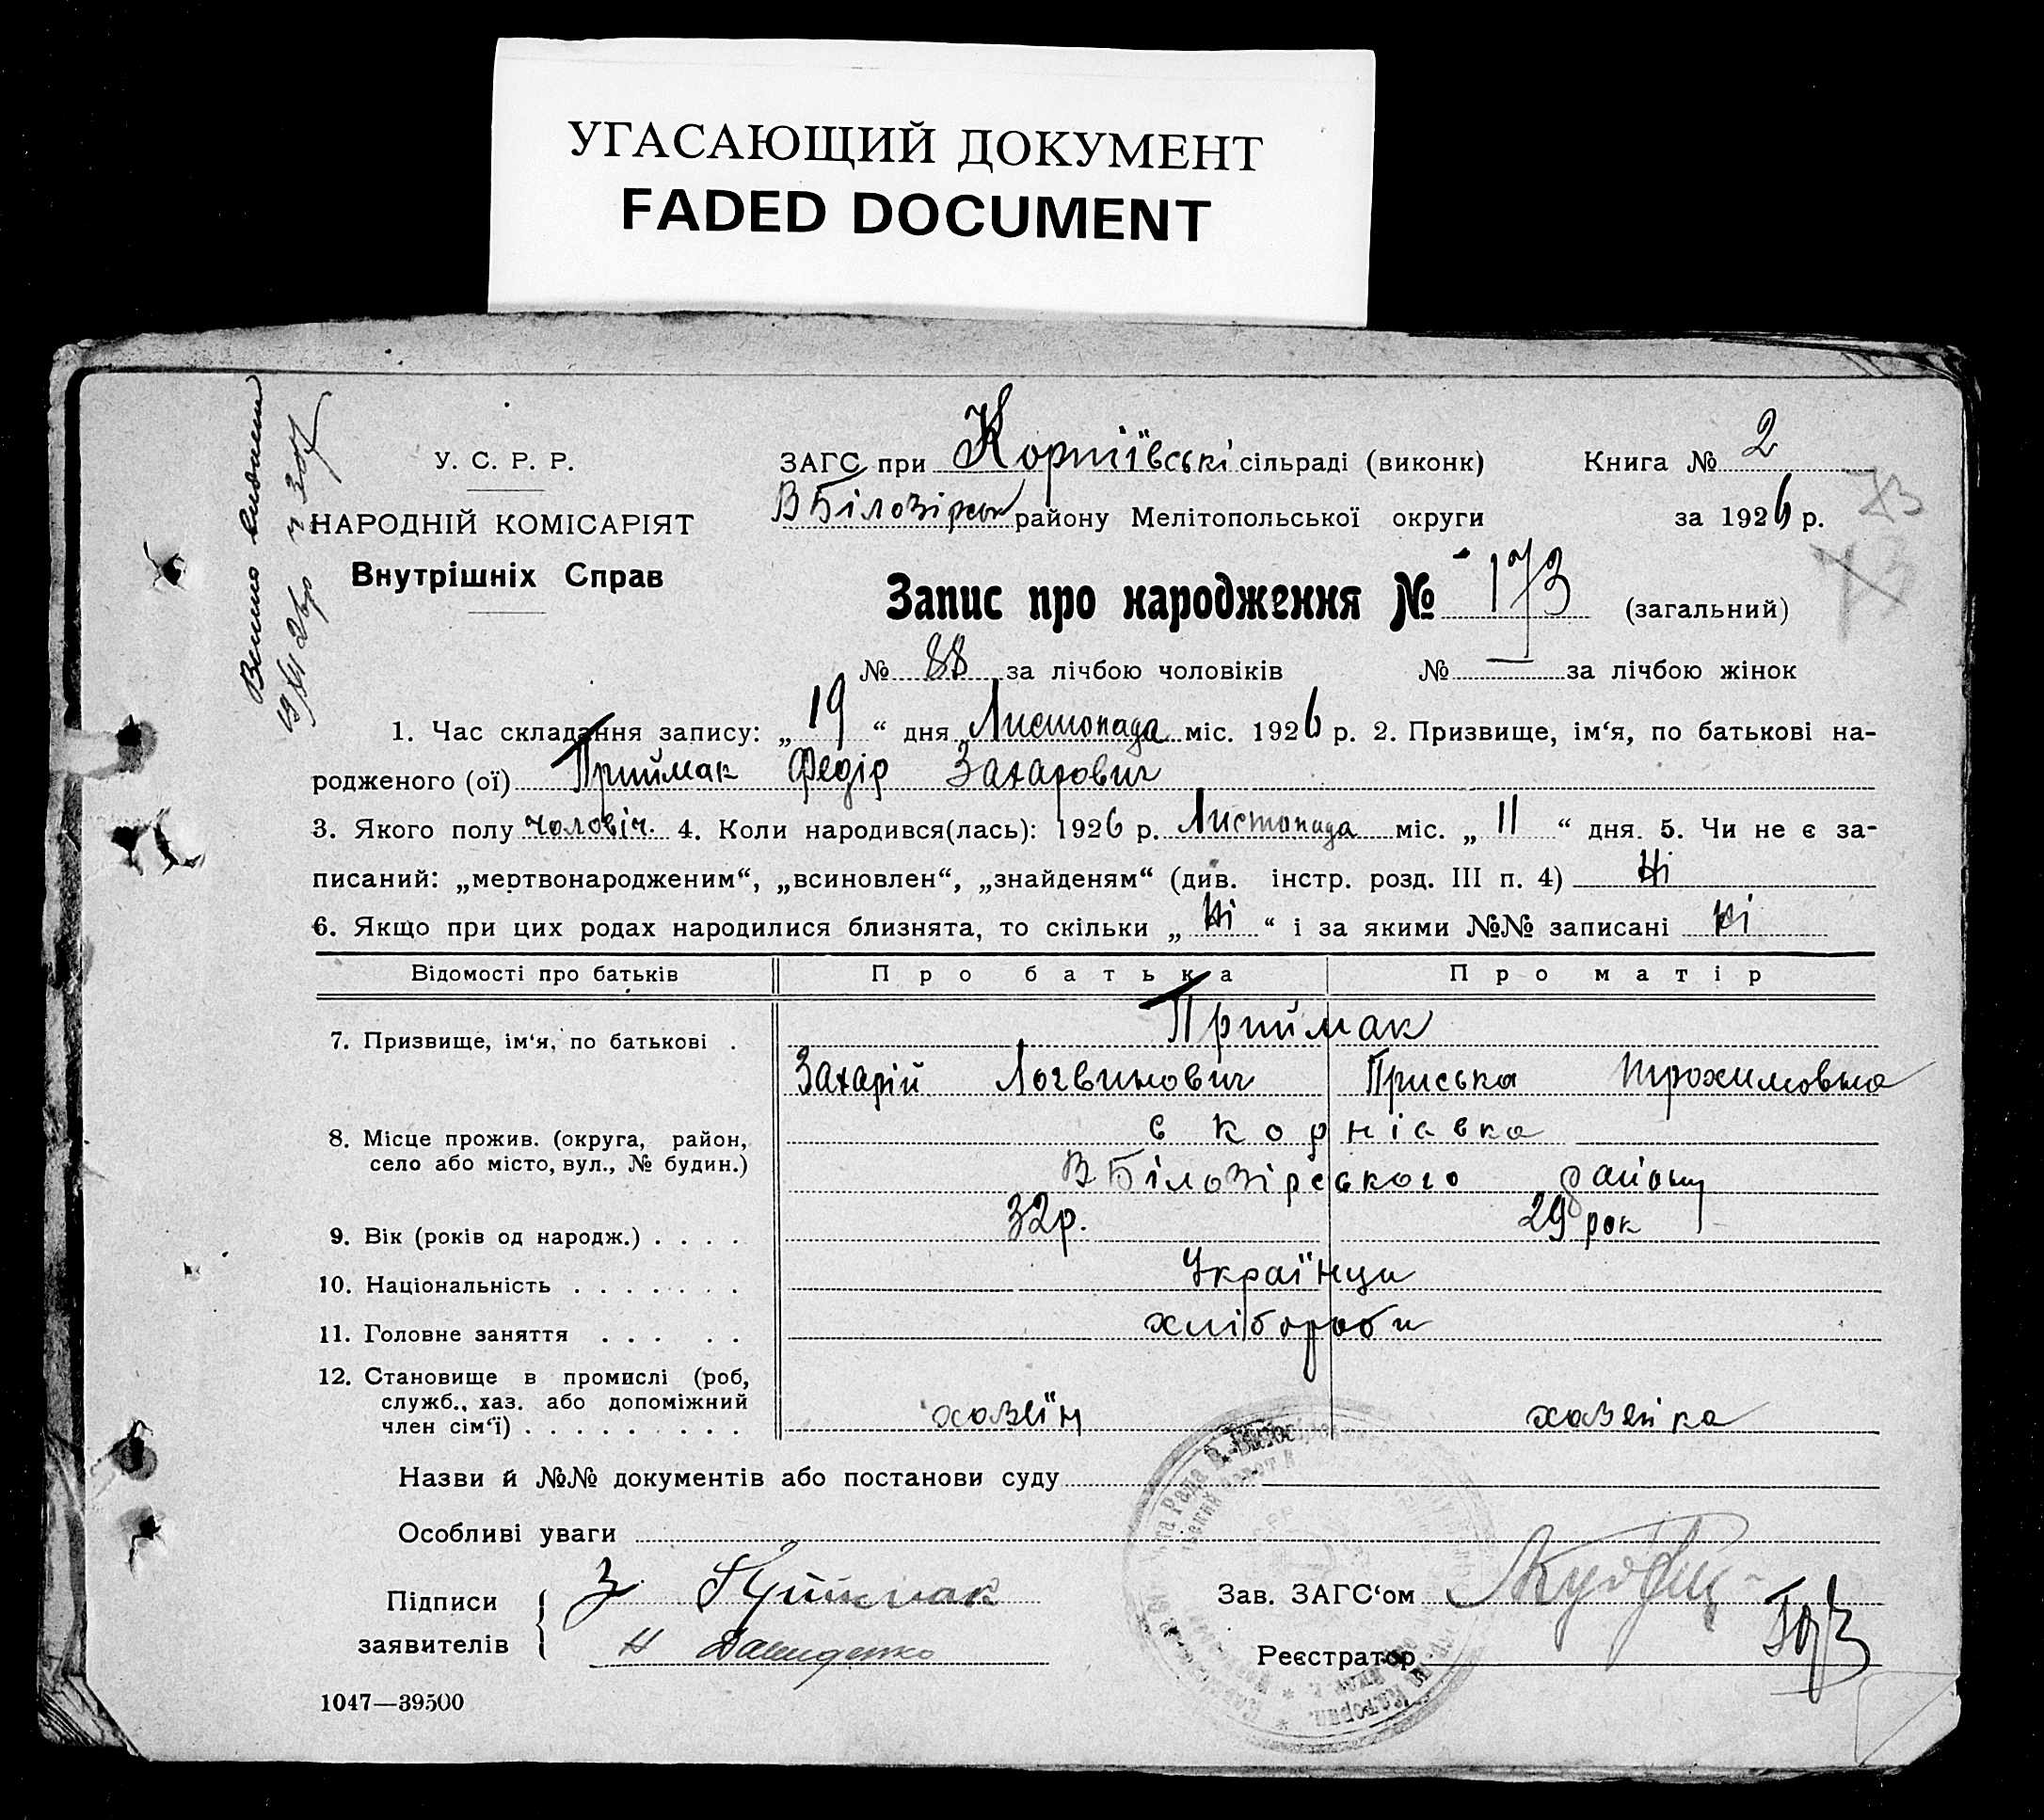 УГАСАЮЩИЙ ДОКУМЕНТ
FADED DOCUMENT
У. С. Р. Р.
НАРОДНІЙ КОМІСАРІЯТ
Внутрішніх Справ
ЗАГС при Корніївські сільраді (виконк) Книга № 2
В Білозірськ району Мелітопольської округи за 1926 р.
73
Запис про народження № 173 (загальний)
№ 88 за лічбою чоловіків № — за лічбою жінок
1. Час складання запису: „ 19 “ дня Листопада міс. 1926 р. 2. Призвище, ім‘я, по батькові на-
родженого (ої) Приймак Федір Захарович
3. Якого полу чоловіч. 4. Коли народився(лась): 1926 р. Листопада міс. „ 11 “ дня. 5. Чи не є за-
писаний: „мертвонародженим“, „всиновлен“, „знайденям“ (див. інстр. розд. III п. 4) Ні
6. Якщо при цих родах народилися близнята, то скільки „ Ні “ і за якими №№ записані Ні
Відомості про батьків Про батька Про матір
7. Призвище, ім‘я, по батькові . Приймак
Захарій Логвинович Приська Трохимовна
8. Місце прожив. (округа, район, с Корніевка
село або місто, вул., № будин.) В Білозірського району
9. Вік (років од народж.) . . . . 32р. 29 рок
10. Національність . . . . . . . Українци
11. Головне заняття . . . . . хлібороби
12. Становище в промислі (роб,
служб., хаз. або допоміжний
член сім‘ї) . . . . . . . . . хозяїн хозяйка
Назви й №№ документів або постанови суду
Особливі уваги
Підписи З Приймак Зав. ЗАГС‘ом
заявителів Н Давиденко Реєстратор
1047—39500